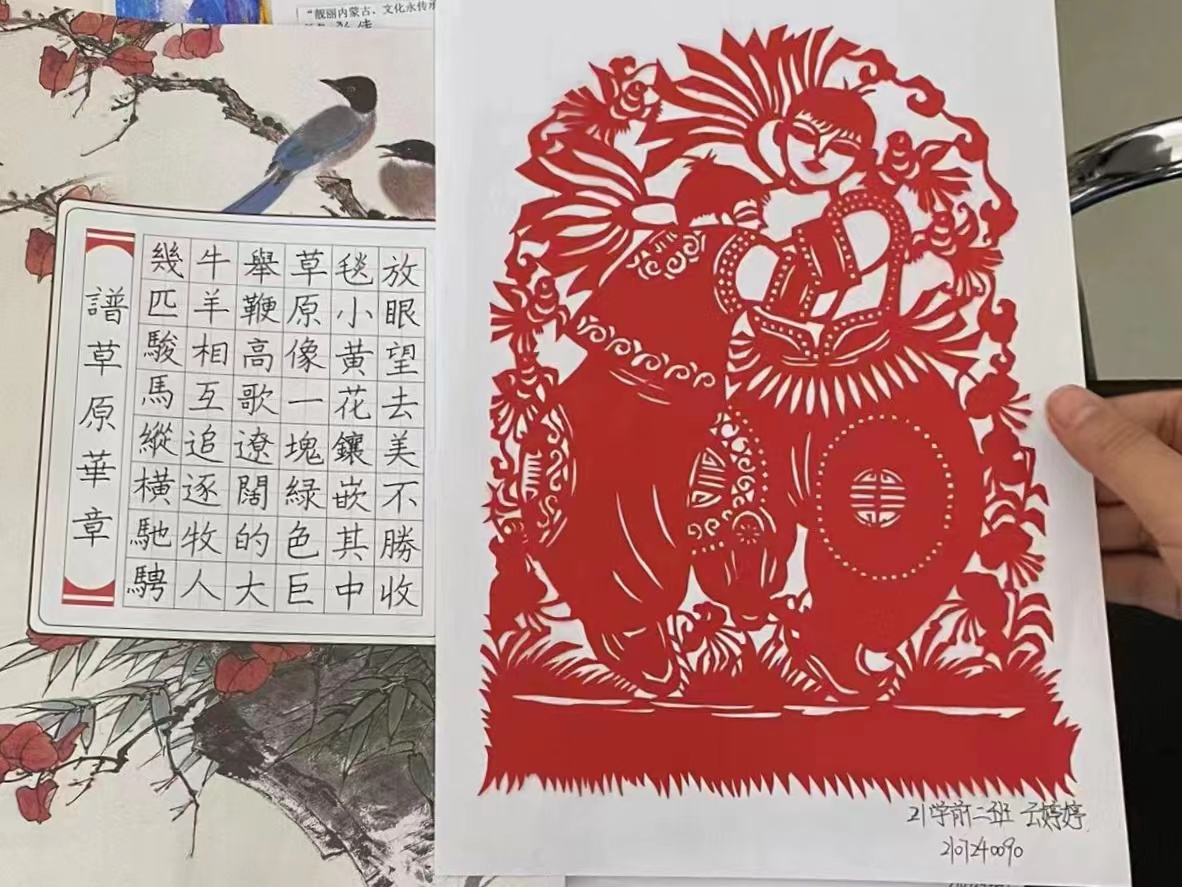 “靓丽内蒙古、文化永传承
譜草原華章
幾匹駿馬縱橫馳騁
牛羊相互追逐牧人
舉鞭高歌遼闊的大
草原像一塊綠色巨
毯小黃花鑲嵌其中
放眼望去美不勝收
21学前二班 云婷婷
2107240090